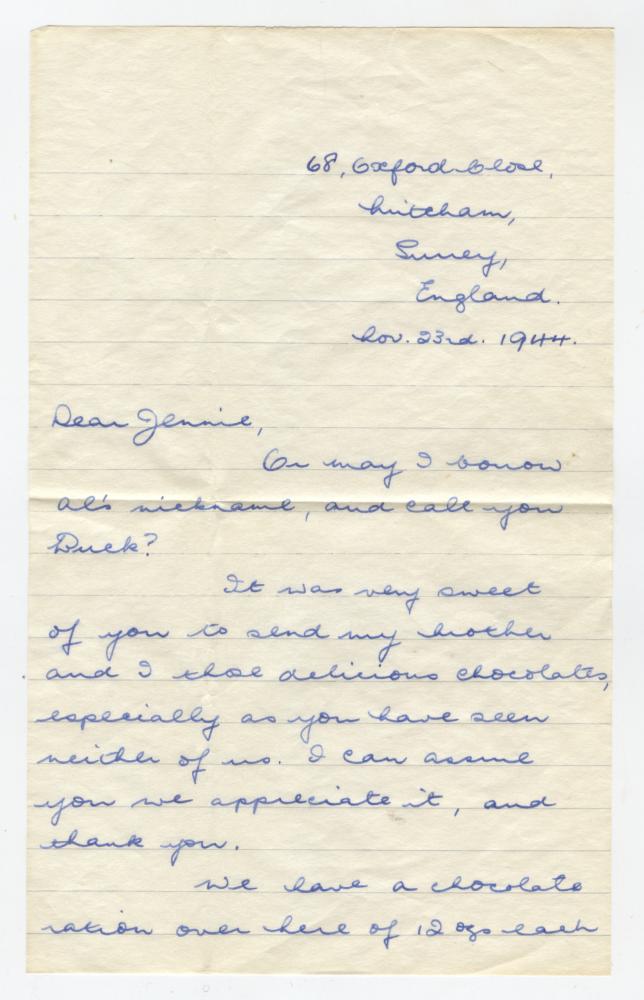 68, Oxford Close,
Mitcham,
Surrey,
England.
Nov. 23rd. 1944.
Dear Jennie,
Or may I borrow
Al's nickname, and call you
Duck?
It was very sweet
of you to send my brother
and I those delicious chocolates,
especially as you have seen
neither of us. I can assure
you we appreciate it, and
thank you.
We have a chocolate
ration over here of 12 ozs each